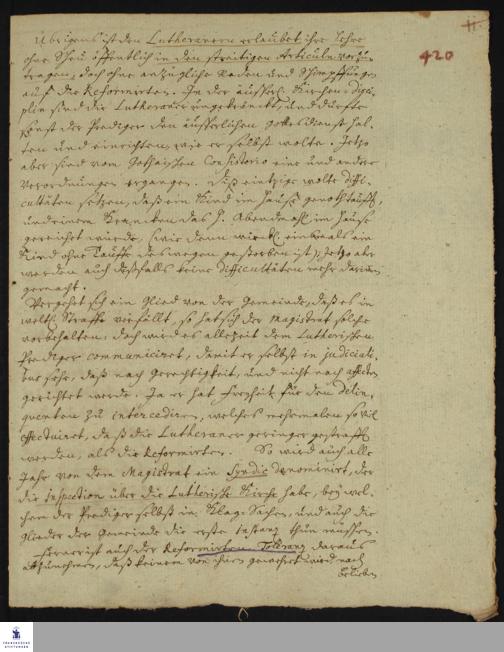 11.
420
Übrigens ist den Lutheranern erlaubet ihre Lehre
ohne Scheu öffentlich in den streitigen Articuln vorzu-
tragen, doch ohne anzügliche Reden und Schimpffungen
auf die Reformirten. In der äusserl. Kirchen-Disci-
plin sind die Lutheraner ungekränckt, und durfte
sonst der Prediger den äusserlichen Gottesdienst hal-
ten und einrichten, wie er selbst wolte. Jetzo
aber sind vom Gothaischen Consistorio eine und andere
Verordnungen ergangen. Diß eintzige wolte diffi-
cultäten setzen, daß ein Kind im Hause genothtaufft,
und einem Krancken das H. Abendmahl im Hause
gereichet würde, (wie denn einmals ein
Kind ohne Tauffe deswegen gestorben ist), jetzo aber
werden auch deßfalls keine difficultäten mehr darinnen
gemacht.
Vergehet sich ein Glied von der Gemeinde, daß es in
weltl. Straffe verfället, so hat sich der Magistrat solche
vorbehalten: doch wird es allezeit dem Lutherischen
Prediger communiciret, damit er selbst in judiciali-
bus sehe, daß nach Gerechtigkeit, und nicht nach affecten
gerichtet werde. Ja er hat Freyheit für den Delin-
quenten zu intercediren, welches mehrmalen so viel
effectuiret, daß die Lutheraner geringer gestrafft
werden, als die Reformirten. So wird auch alle
Jahr von dem Magistrat ein Syndic denominiret, der
die Inspection über die Lutherische Kirche habe, bey wel-
chem der Prediger selbst in Klag-Sachen, und auch die
Glieder der Gemeinde die erste Instanz thun müssen.
Ferner ist auch der Reformirten Toleranz daraus
abzunehmen, daß keinem von ihnen gewehret wird nach
Belieben
FRANCKESCHE
STIFTUNGEN